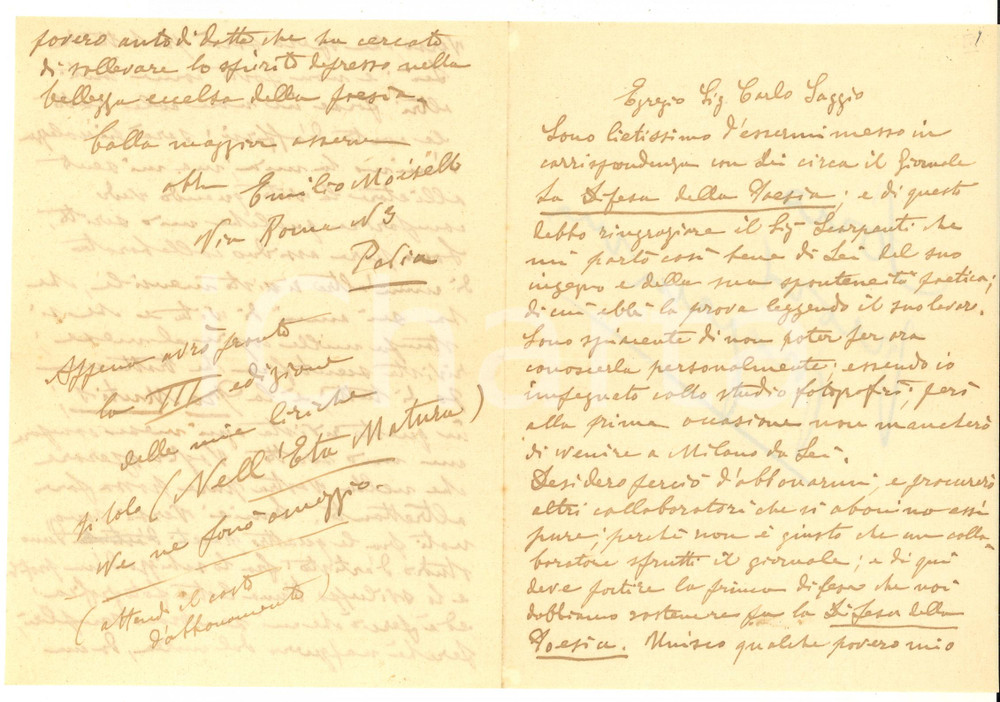 1
Egregio Sig Carlo Saggio
Sono lietissimo d'essermi messo in
corrispondenza con Lei circa il Giornale
La Difesa della Poesia; e di questo
debbo ringraziare il Sig Scarpenti che
mi parlò così bene di Lei del suo
ingegno e della sua spontaneità poetica;
di cui ebbi la prova leggendo il suo lavor.
Sono spiacente di non poter per ora
conoscerla personalmente; essendo io
impegnato collo studio fotogrfis; però
alla prima occasione non mancherò
di venire a Milano da Lei.
Desidero perciò d'abbonarmi, e procurerò
altri collaboratori che si abonino essi
pure; perchè non è giusto che un colla-
boratore sfrutti il giornale; e di qui
deve partire la prima difesa che noi
dobbiamo sostenere per la Difesa della
Poesia. Unisco qualche povero mio
povero autodidatta che ha cercato
di sollevare lo spirito depresso nella
bellezza eccelsa della poesia.
Colla maggior osserv
obb Emilio Moisello
Via Roma N 3
Pavia
Appena avrò pronto
la III edizione
delle mie liriche
titolo (Nell'Età Matura)
Ve ne farò omaggio.
(attendi il costo
d'abbonamento)
iCharta